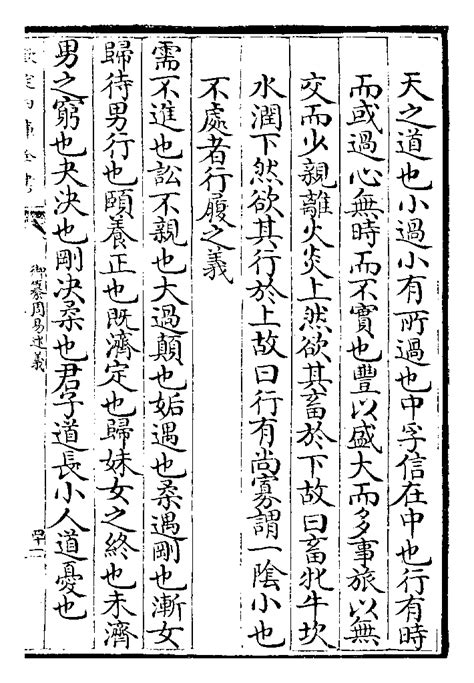 天之道也小過小有所過也中孚信在中也行有時
而或過心無時而不實也豐以盛大而多事旅以無
交而少親離火炎上然欲其畜於下故曰畜牝牛坎
水潤下然欲其行於上故曰行有尚寡謂一陰小也
不處者行履之義
需不進也訟不親也大過顛也姤遇也柔遇剛也漸女
歸待男行也頤養正也既濟定也歸妹女之終也未濟
男之窮也夬决也剛决柔也君子道長小人道憂也
欽定四庫全書
御纂周易述義